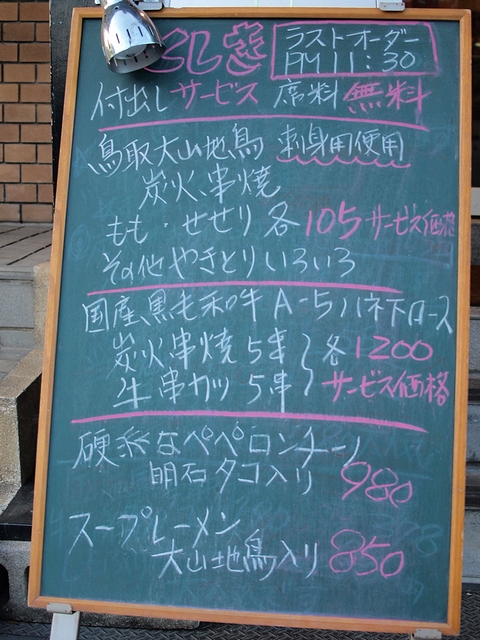 としき
ラストオーダー
PM 11:30
付出しサービス 席料無料
鳥取大山地鳥 刺身用使用
炭火串焼
もも・せせり各105サービス価格
その他やきとりいろいろ
国産黒毛和牛A-5ハネ下ロース
炭火串焼5串 各1200
牛串カツ5串 サービス価格
硬派なペペロンチーノ
明石タコ入り 980
スープレーメン
大山地鳥入り 850